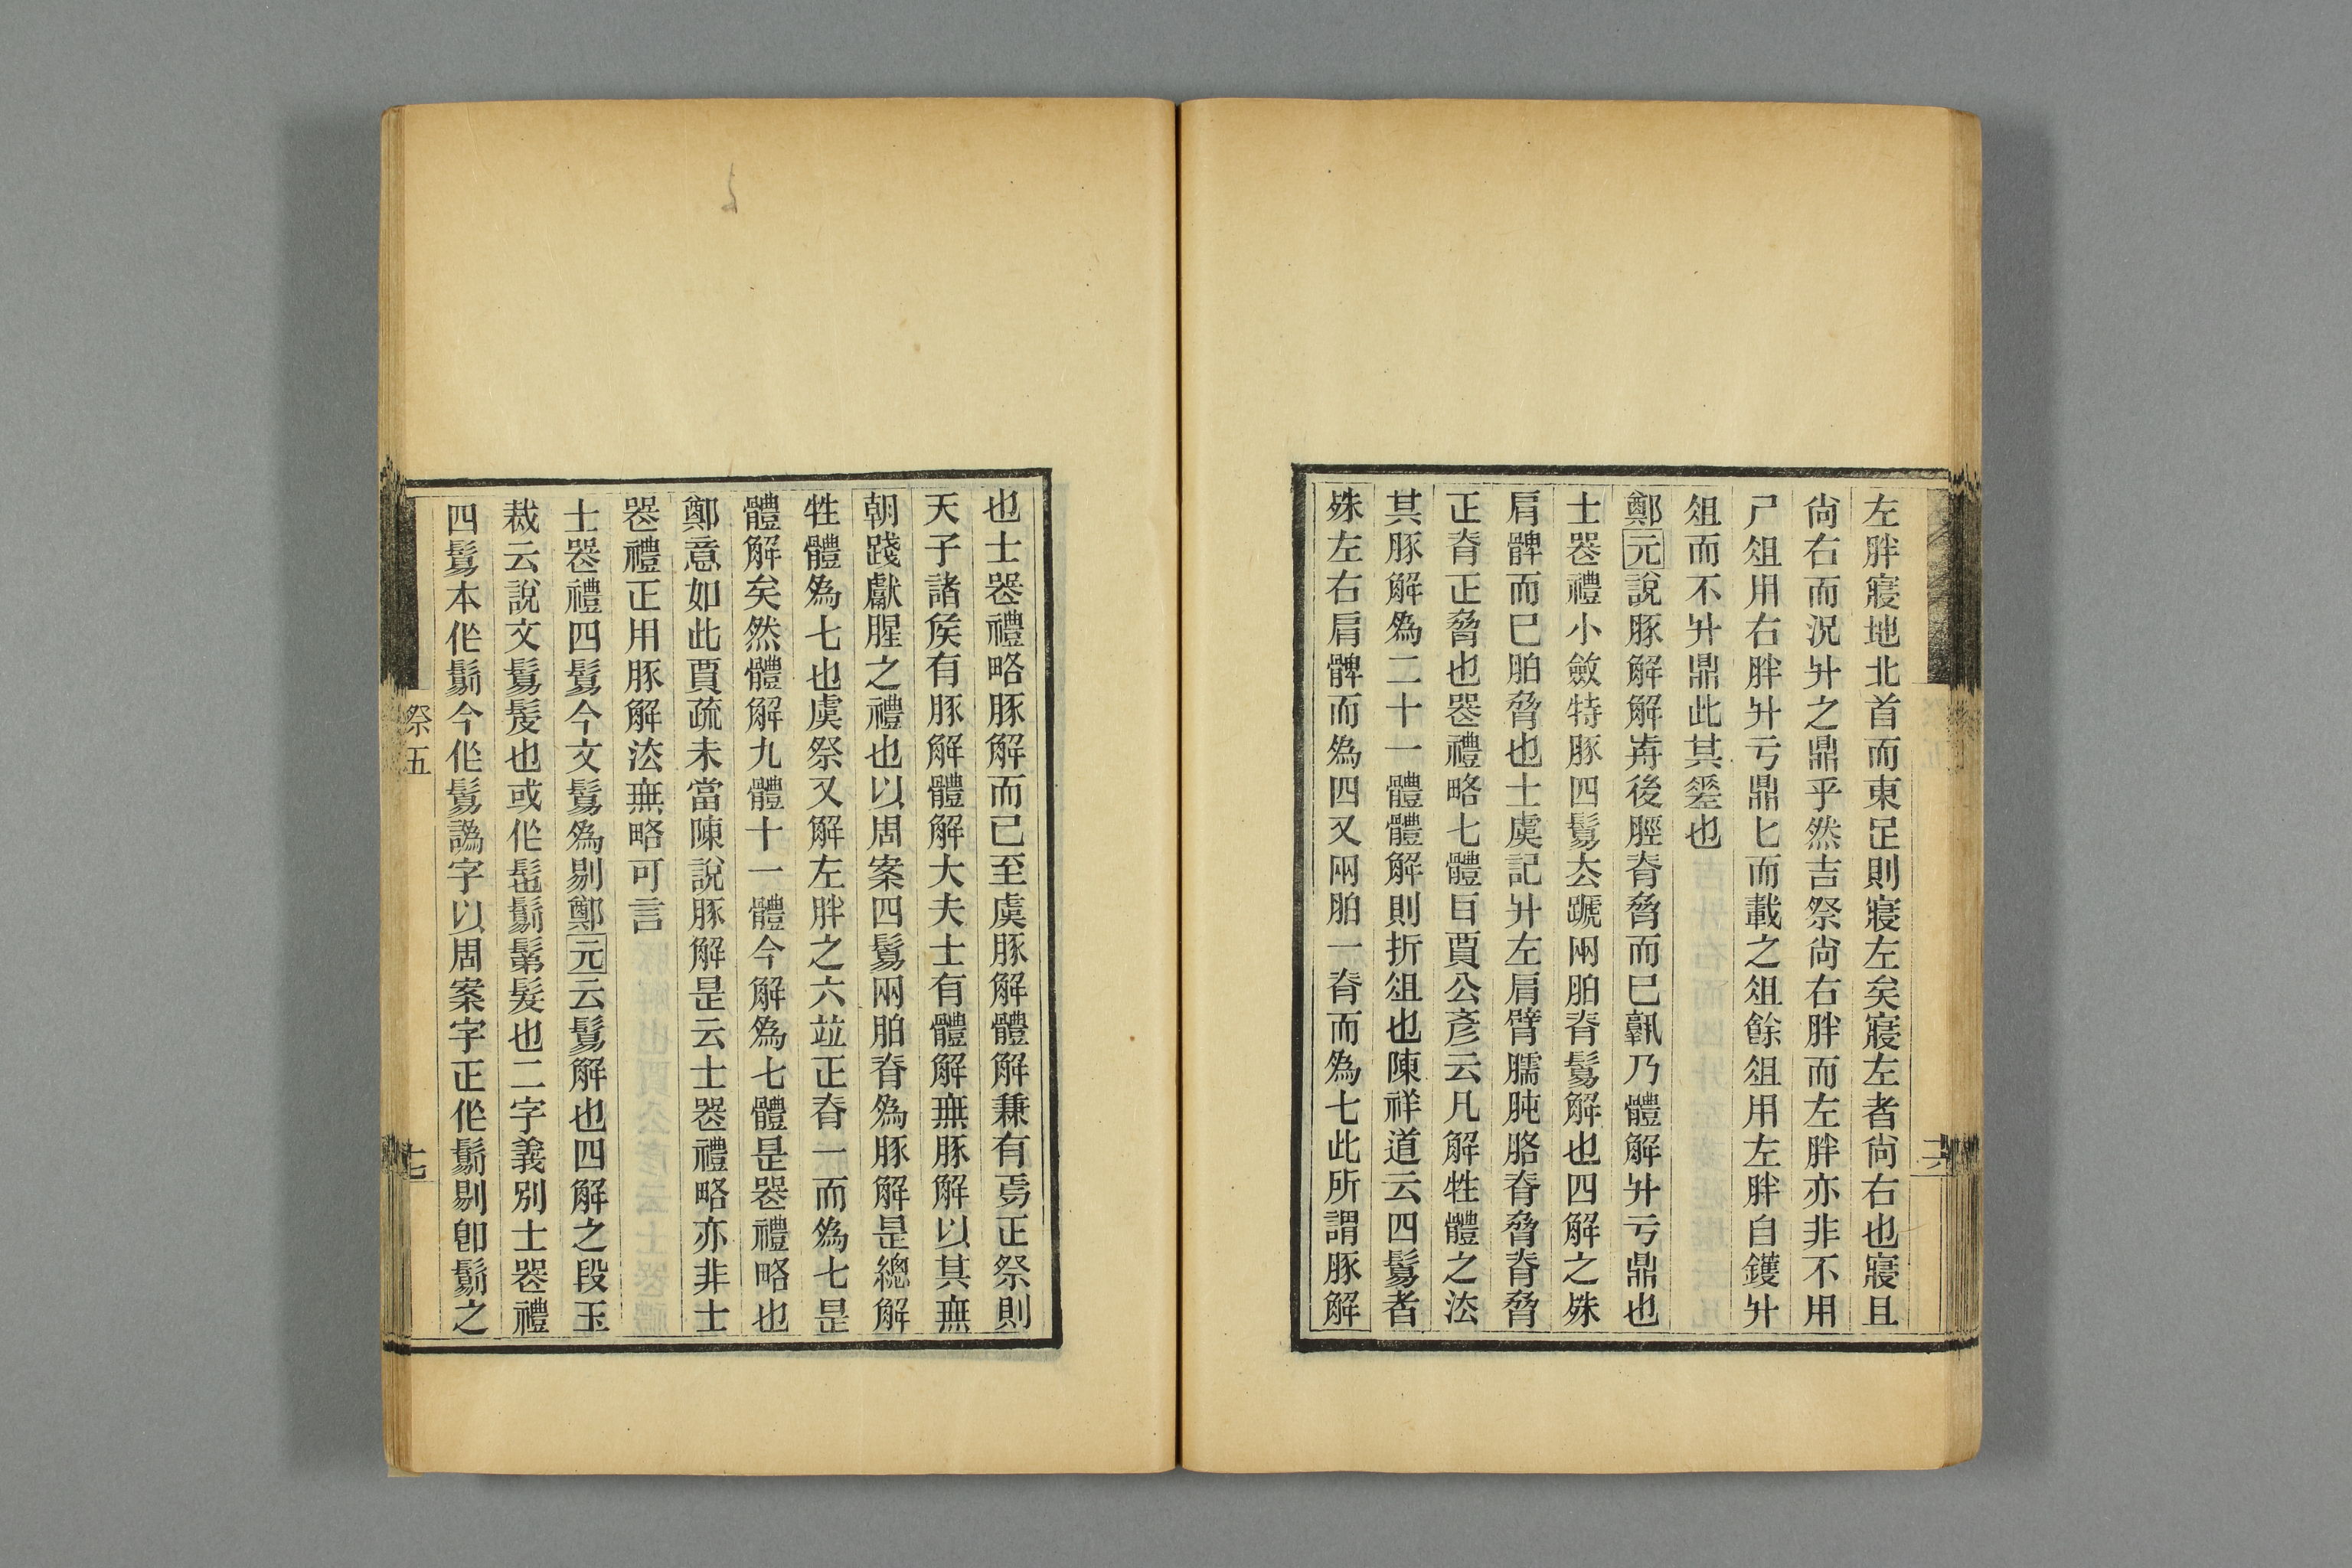 左胖寢地北首而東足則寢左矣寢左者尙右也寢且
尙右而況升之鼎乎然吉祭尙右胖而左胖亦非不用
尸俎用右胖升亏鼎匕而載之俎餘俎用左胖自鑊升
俎而不升鼎此其䇓也
鄭元說豚解解歬後脛脊脅而已孰乃體解升亏鼎也
士喪禮小斂特豚四鬄去蹏兩胉脊鬄解也四解之殊
肩髀而已胉脅也士虞記升左肩臂臑肫胳脊脅脊脅
正脊正脅也喪禮略七體㠯賈公彥云凡解牲體之㳒
其豚解爲二十一體體解則折俎也陳祥道云四鬄者
殊左右肩髀而爲四又兩胉一脊而爲七此所謂豚解
也士喪禮略豚解而已至虞豚解體解兼有焉正祭則
天子諸矦有豚解體解大夫士有體解無豚解以其無
朝踐獻腥之禮也以周案四鬄兩胉脊爲豚解是總解
牲體爲七也虞祭又解左胖之六竝正脊一而爲七是
體解矣然體解九體十一體今解爲七體是喪禮略也
鄭意如此賈疏未當陳說豚解是云士喪禮略亦非士
喪禮正用豚解㳒無略可言
士喪禮四鬄今文鬄爲剔鄭元云鬄解也四解之段玉
裁云說文鬄髲也或作髢鬀鬄髮也二字義別士喪禮
四鬄本作鬀今作鬄譌字以周案字正作鬀剔卽鬀之
祭五
七
六